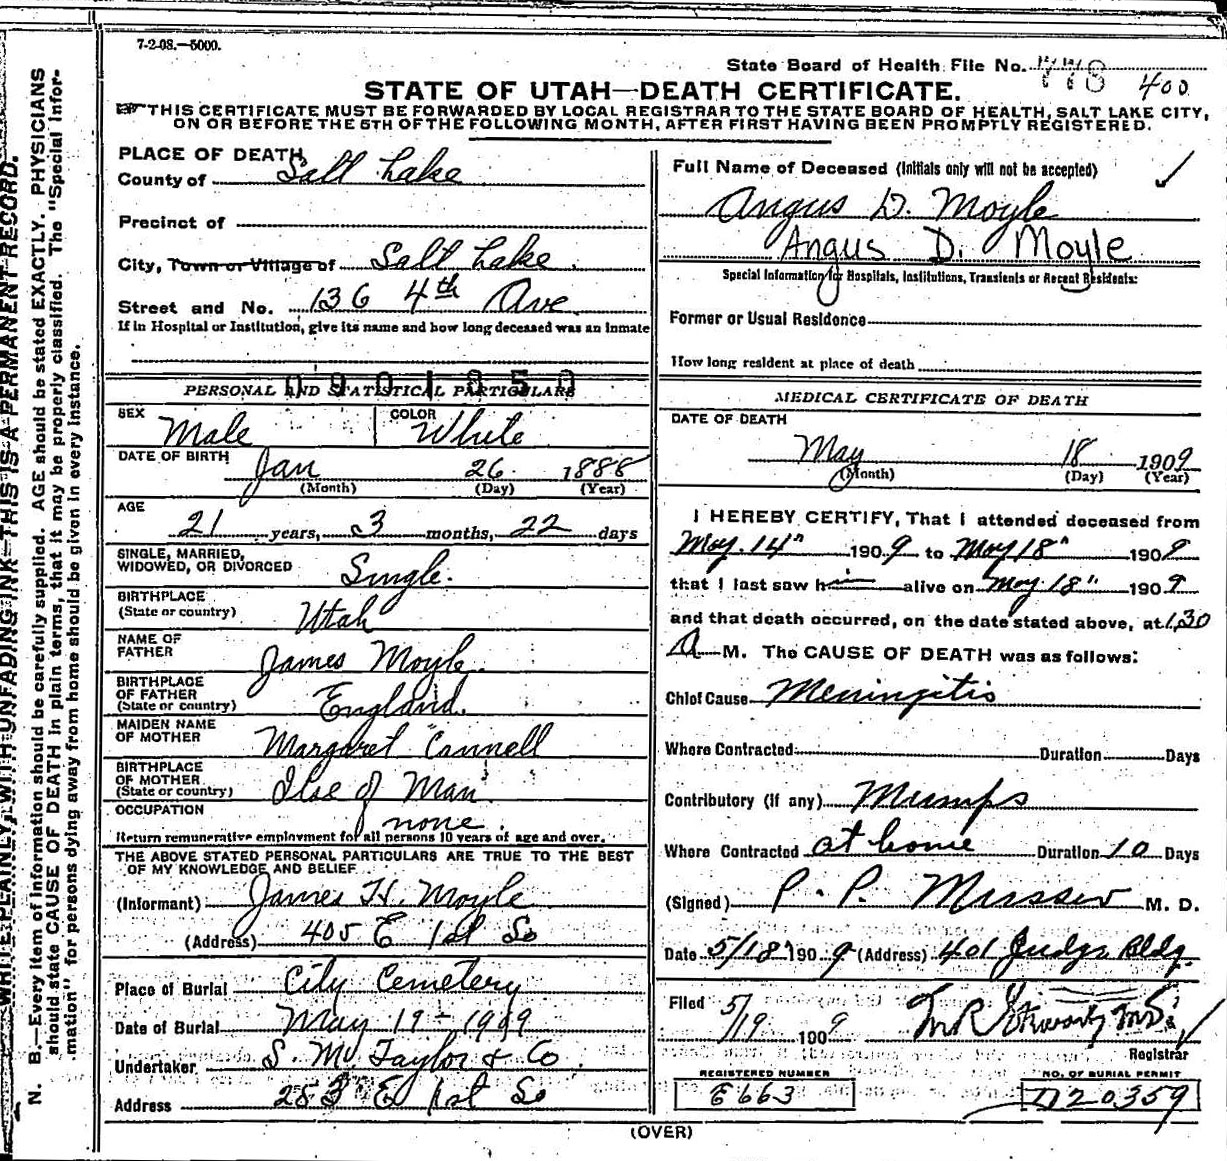 7-2-08.—5000.
State Board of Health File No. 778 400
STATE OF UTAH—DEATH CERTIFICATE.
☞THIS CERTIFICATE MUST BE FORWARDED BY LOCAL REGISTRAR TO THE STATE BOARD OF HEALTH, SALT LAKE CITY,
ON OR BEFORE THE 5TH OF THE FOLLOWING MONTH, AFTER FIRST HAVING BEEN PROMPTLY REGISTERED.
PLACE OF DEATH
County of Salt Lake
Precinct of
City, Town or Village of Salt Lake.
Street and No. 136 4th Ave.
If in Hospital or Institution, give its name and how long deceased was an inmate
0901050
PERSONAL AND STATISTICAL PARTICULARS
SEX Male COLOR White
DATE OF BIRTH Jan 26 1888
(Month) (Day) (Year)
AGE
21 years, 3 months, 22 days
SINGLE, MARRIED,
WIDOWED, OR DIVORCED Single.
BIRTHPLACE
(State or country) Utah
NAME OF
FATHER James Moyle.
BIRTHPLACE
OF FATHER
(State or country) England.
MAIDEN NAME
OF MOTHER Margaret Cannell
BIRTHPLACE
OF MOTHER
(State or country) Ilse of Man
OCCUPATION none.
Return remunerative employment for all persons 10 years of age and over.
THE ABOVE STATED PERSONAL PARTICULARS ARE TRUE TO THE BEST
OF MY KNOWLEDGE AND BELIEF
(Informant) James H. Moyle
(Address) 405 E 1st So
Place of Burial City Cemetery
Date of Burial May 19-1909
Undertaker S. M. Taylor & Co.
Address 253 E 1st So
Full Name of Deceased (Initials only will not be accepted)
Angus D. Moyle
Angus D. Moyle
Special Information for Hospitals, Institutions, Transients or Recent Residents:
Former or Usual Residence
How long resident at place of death
MEDICAL CERTIFICATE OF DEATH
DATE OF DEATH
May 18 1909
(Month) (Day) (Year)
I HEREBY CERTIFY, That I attended deceased from
May. 14" 1909 to May 18" 1909
that I last saw him alive on May. 18" 1909
and that death occurred, on the date stated above, at 1,30
A M. The CAUSE OF DEATH was as follows:
Chief Cause Meningitis
Where Contracted Duration Days
Contributory (if any) Mumps
Where Contracted at home Duration 10 Days
(Signed) P. P. Musser M. D.
Date 5/18 1909 (Address) 401 Judge Bldg.
Filed 5/19 1909
Registrar
REGISTERED NUMBER
E663
NO. OF BURIAL PERMIT
D20359
(OVER)
WRITE PLAINLY, WITH UNFADING INK—THIS IS A PERMANENT RECORD.
N. B.—Every item of information should be carefully supplied. AGE should be stated EXACTLY. PHYSICIANS
should state CAUSE OF DEATH in plain terms, that it may be properly classified. The "Special Infor-
mation" for persons dying away from home should be given in every instance.